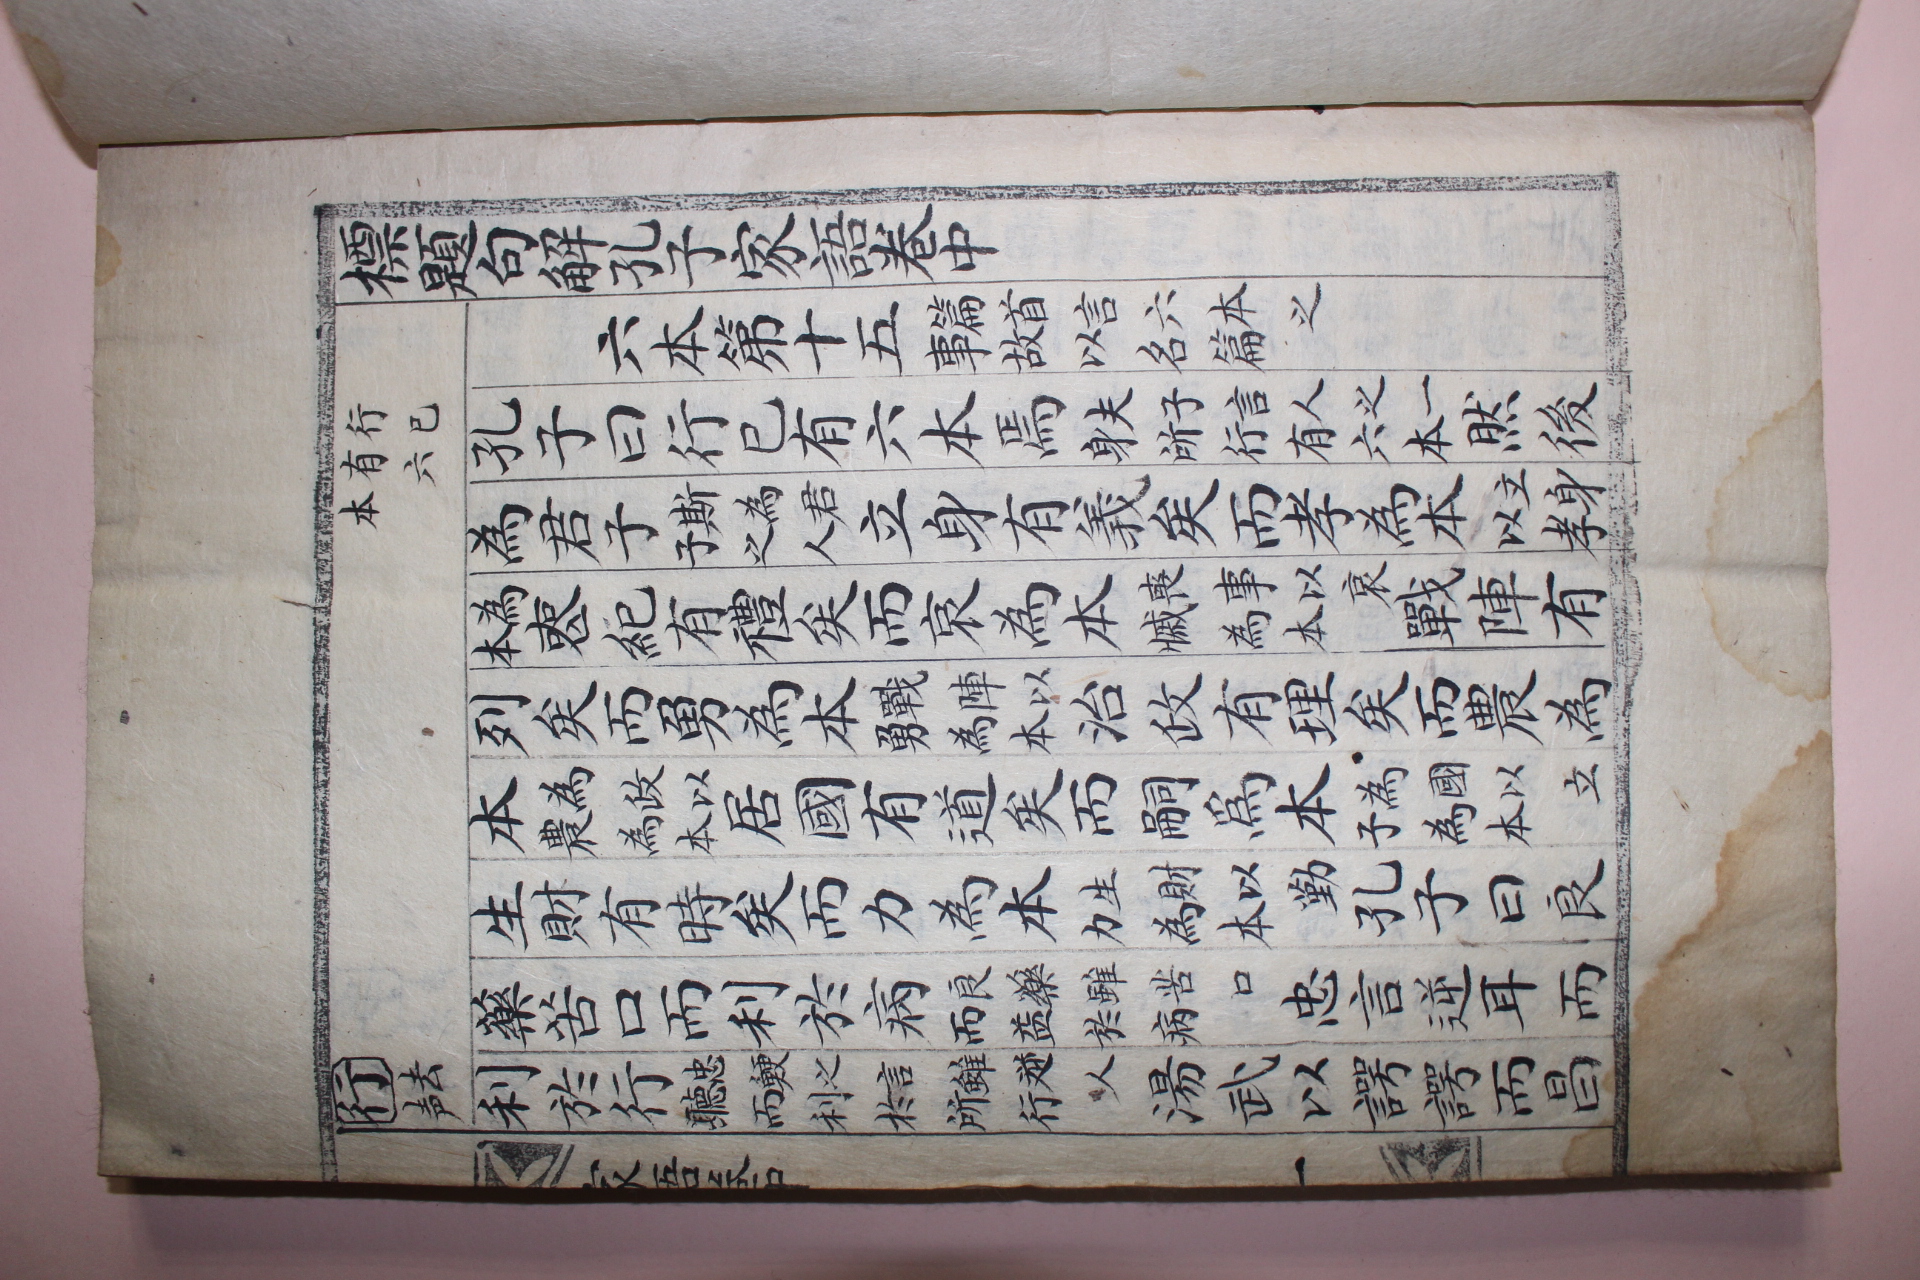 標題句解孔子家語卷中
六本第十五篇首言六本之事故以名篇
行已
有六
本
孔子曰行已有六本焉夫子言人之一身所行有六本然後
為君子斯為君子之人立身有義矣而孝為本立身以孝
為本喪紀有禮矣而哀為本喪事以哀慽為本戰陣有
列矣而勇為本戰陣以勇為本治政有理矣而農為
本為政以農為本居國有道矣而嗣爲本為國以立子為本
生財有時矣而力為本生財以勤力為本孔子曰良
藥苦口而利於病良藥雖苦口而益於病忠言逆耳而
行去声
利於行忠鯁之言雖逆人聽而利於所行湯武以諤諤而昌
家語卷中
一